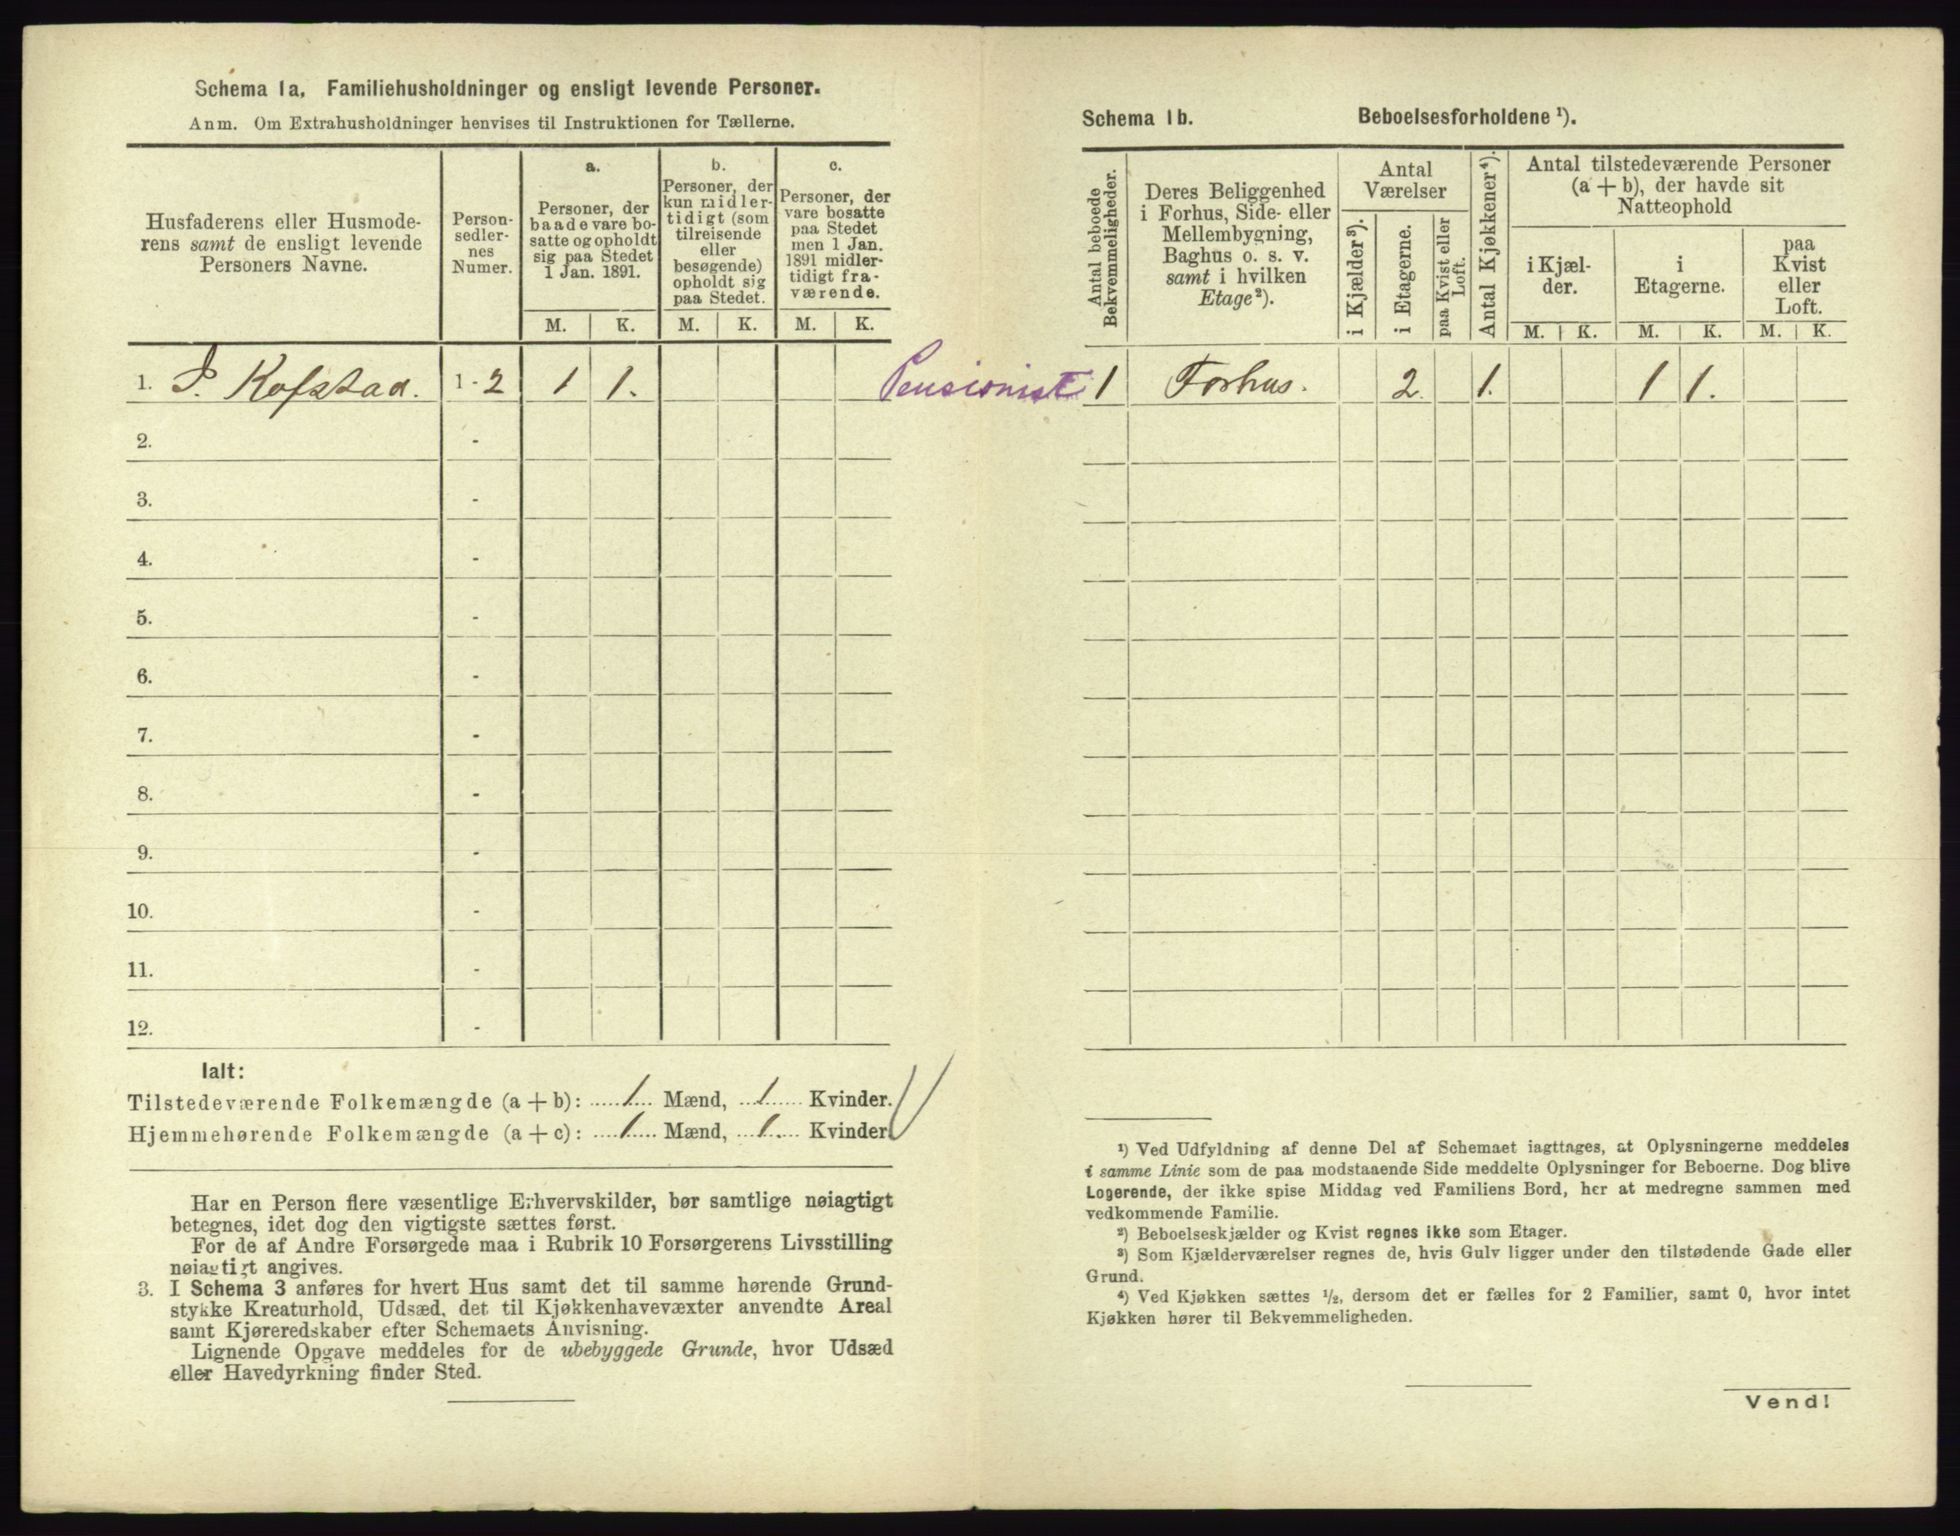 Schema 1a. Familiehusholdninger og ensligt levende Personer.
Anm. Om Extrahusholdninger henvises til Instruktionen for Tællerne.
Husfaderens eller Husmode-
rens samt de ensligt levende
Personers Navne.
Person-
sedler-
nes
Numer.
a.
Personer, der
baade vare bo-
satte og opholdt
sig paa Stedet
1 Jan. 1891.
b.
Personer, der
kun midler-
tidigt (som
tilreisende
eller
besøgende)
opholdt sig
paa Stedet.
c.
Personer, der
vare bosatte
paa Stedet
men 1 Jan.
1891 midler-
tidigt fra-
værende.
M. K. M. K. M. K.
1. P. Kofstad. 1-2 1 1. Pensionist
2. -
3. -
4. -
5. -
6. -
7. -
8. -
9. -
10. -
11. -
12. -
Ialt:
Tilstedeværende Folkemængde (a + b): 1 Mænd, 1 Kvinder.
Hjemmehørende Folkemængde (a + c): 1 Mænd, 1. Kvinder.
Har en Person flere væsentlige Erhvervskilder, bør samtlige nøiagtigt
betegnes, idet dog den vigtigste sættes først.
For de af Andre Forsørgede maa i Rubrik 10 Forsørgerens Livsstilling
nøiagtigt angives.
3. I Schema 3 anføres for hvert Hus samt det til samme hørende Grund-
stykke Kreaturhold, Udsæd, det til Kjøkkenhavevæxter anvendte Areal
samt Kjøreredskaber efter Schemaets Anvisning.
Lignende Opgave meddeles for de ubebyggede Grunde, hvor Udsæd
eller Havedyrkning finder Sted.
Schema 1b. Beboelsesforholdene ¹).
Antal beboede
Bekvemmeligheder.
Deres Beliggenhed
i Forhus, Side- eller
Mellembygning,
Baghus o. s. v.
samt i hvilken
Etage ²).
Antal
Værelser
i Kjælder ³).
i Etagerne.
paa Kvist eller
Loft.
Antal Kjøkkener ⁴).
Antal tilstedeværende Personer
(a + b), der havde sit
Natteophold
i Kjæl-
der.
i
Etagerne.
paa
Kvist
eller
Loft.
M. K. M. K. M. K.
1 Forhus. 2. 1. 1 1.
¹) Ved Udfyldning af denne Del af Schemaet iagttages, at Oplysningerne meddeles
i samme Linie som de paa modstaaende Side meddelte Oplysninger for Beboerne. Dog blive
Logerende, der ikke spise Middag ved Familiens Bord, her at medregne sammen med
vedkommende Familie.
²) Beboelseskjælder og Kvist regnes ikke som Etager.
³) Som Kjælderværelser regnes de, hvis Gulv ligger under den tilstødende Gade eller
Grund.
⁴) Ved Kjøkken sættes ½, dersom det er fælles for 2 Familier, samt 0, hvor intet
Kjøkken hører til Bekvemmeligheden.
Vend!